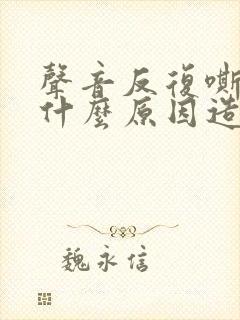 聲音反復嘶
什麼原因造
魏永信